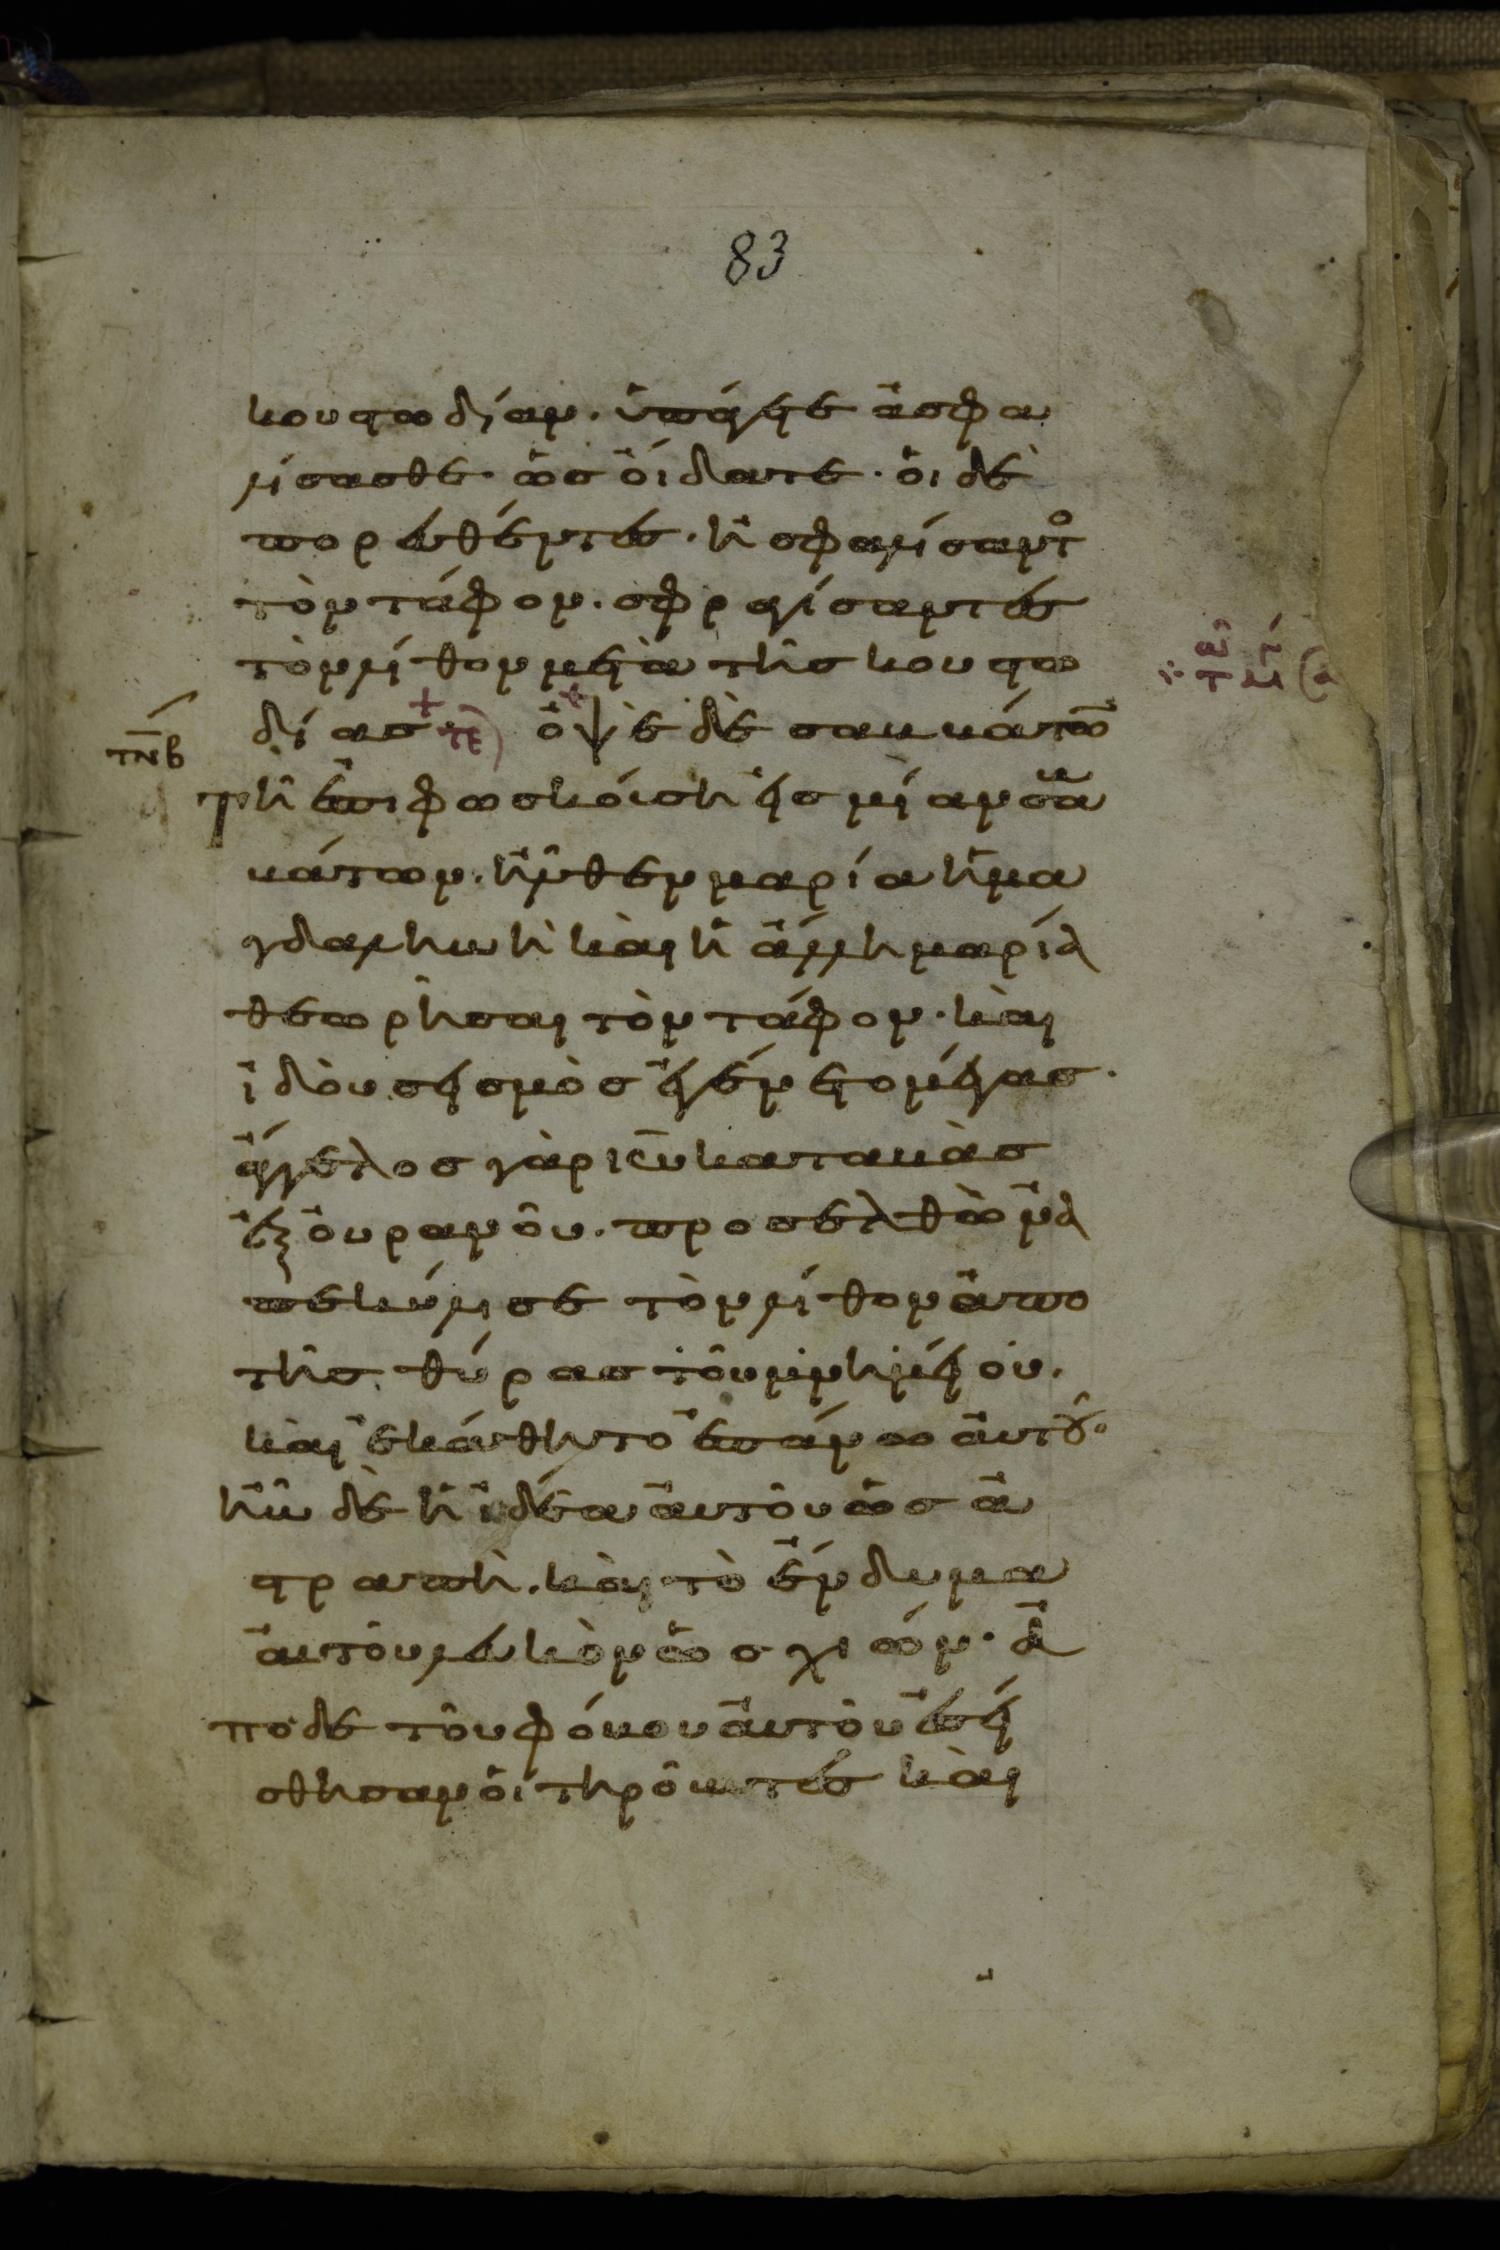 83
κουστωδίαν. ὑπάγετε ἀσφα
λίσασθε. ὡς οἴδατε. οἱ δὲ
πορευθέντες. ἠσφαλίσαντο
τὸν τάφον. σφραγίσαντες
τὸν λίθον μετὰ τῆς κουστω
δίας τε) ὀψὲ δὲ σαββάτω
τνβ
τῆ ἐπιφωσκούση εἰς μίαν σα
βάτων. ἦλθεν μαρία ἡ μα
γδαληνὴ καὶ ἡ ἄλλη μαρία
θεωρῆσαι τὸν τάφον. καὶ
ἰδοὺ σεισμὸς ἐγένετο μέγας.
ἄγγελος γὰρ κυ καταβὰς
ἐξ οὐρανοῦ. προσελθὼν ἀ
πεκύλισε τὸν λίθον ἀπο
τῆς θύρας τοῦ μνημείου.
καὶ ἐκάθητο ἐπάνω αὐτοῦ.
ἦν δὲ ἡ ἰδέα αὐτοῦ ὡς ἀ
στραπὴ. καὶ τὸ ἔνδυμα
αὐτοῦ λευκὸν ὡς χιών. ἀ
πο δε τοῦ φόβου αὐτοῦ ἐσεί
σθησαν οἱ τηροῦντες καὶ